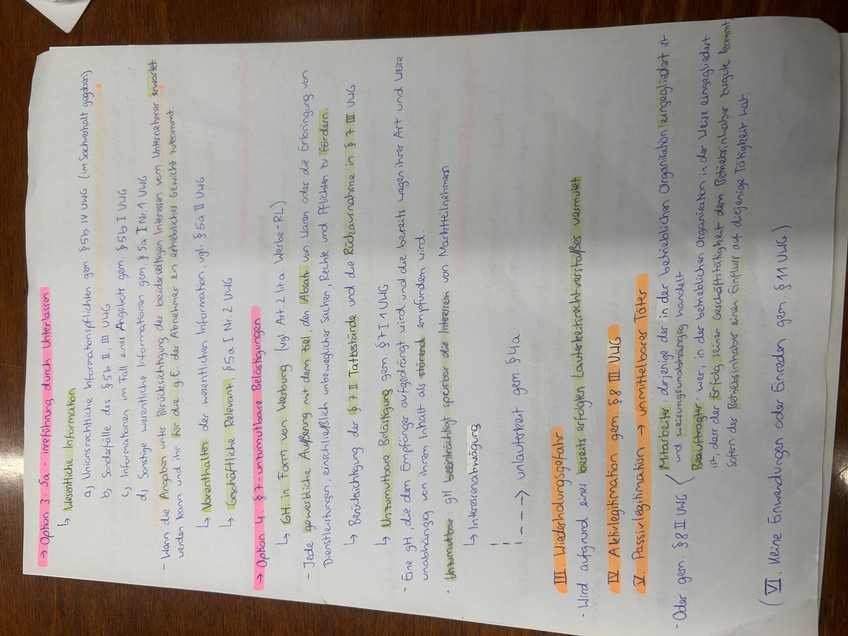 → Option 3 5a - Irreführung durch Unterlassen
↳ Wesentliche Information
a) Unionsrechtliche Informationspflichten gem. § 5b IV UWG (im Sachverhalt gegeben)
b) Sonderfälle des § 5b II, III UWG
c) Informationen im Fall eines Angebots gem. § 5b I UWG
d) Sonstige wesentliche Informationen gem. § 5a I Nr. 1 UWG
- Wenn die Angaben unter Berücksichtigung der beiderseitigen Interessen vom Unternehmer erwartet
werden kann und ihr für die g.E. des Abnehmer ein erhebliches Gewicht zukommt
↳ Vorenthalten der wesentlichen Information, vgl. § 5a II UWG
↳ Geschäftliche Relevanz, § 5a I Nr. 2 UWG
→ Option 4 § 7 - unzumutbare Belästigungen
↳ GH in Form von Werbung (vgl. Art. 2 lit a Werbe-RL)
- Jede gewerbliche Äußerung mit dem Ziel, den Absatz von Waren oder die Erbringung von
Dienstleistungen, einschließlich unbeweglicher Sachen, Rechte und Pflichten zu fördern.
↳ Berücksichtigung der § 7 II Tatbestände und die Rückausnahme in § 7 III UWG
↳ Unzumutbare Belästigung gem. § 7 I 1 UWG
- Eine gH, die dem Empfänger aufgedrängt wird und die bereits wegen ihrer Art und Weise
unabhängig von ihrem Inhalt als störend empfunden wird.
- Unzumutbar: gH beeinträchtigt spürbar die Interessen von Marktteilnehmern
↳ Interessenabwägung
---> unlauterkeit gem. § 4a
III. Wiederholungsgefahr
- Wird aufgrund eines bereits erfolgten Lauterkeitsrechtverstoßes vermutet
IV. Aktivlegitimation gem § 8 III UWG
V. Passivlegitimation → unmittelbarer Täter
- Oder gem. § 8 II UWG
Mitarbeiter: derjenige der in der betrieblichen Organisation eingegliedert ist
und weisungsunabhängig handelt
Beauftragter: wer, in der betrieblichen Organisation in der Weise eingegliedert
ist, dass der Erfolg seiner Geschäftstätigkeit dem Betriebsinhaber zugute kommt
sofern der Betriebsinhaber einen Einfluss auf diejenige Tätigkeit hat.
(VI. Keine Einwendungen oder Einreden gem. § 11 UWG)